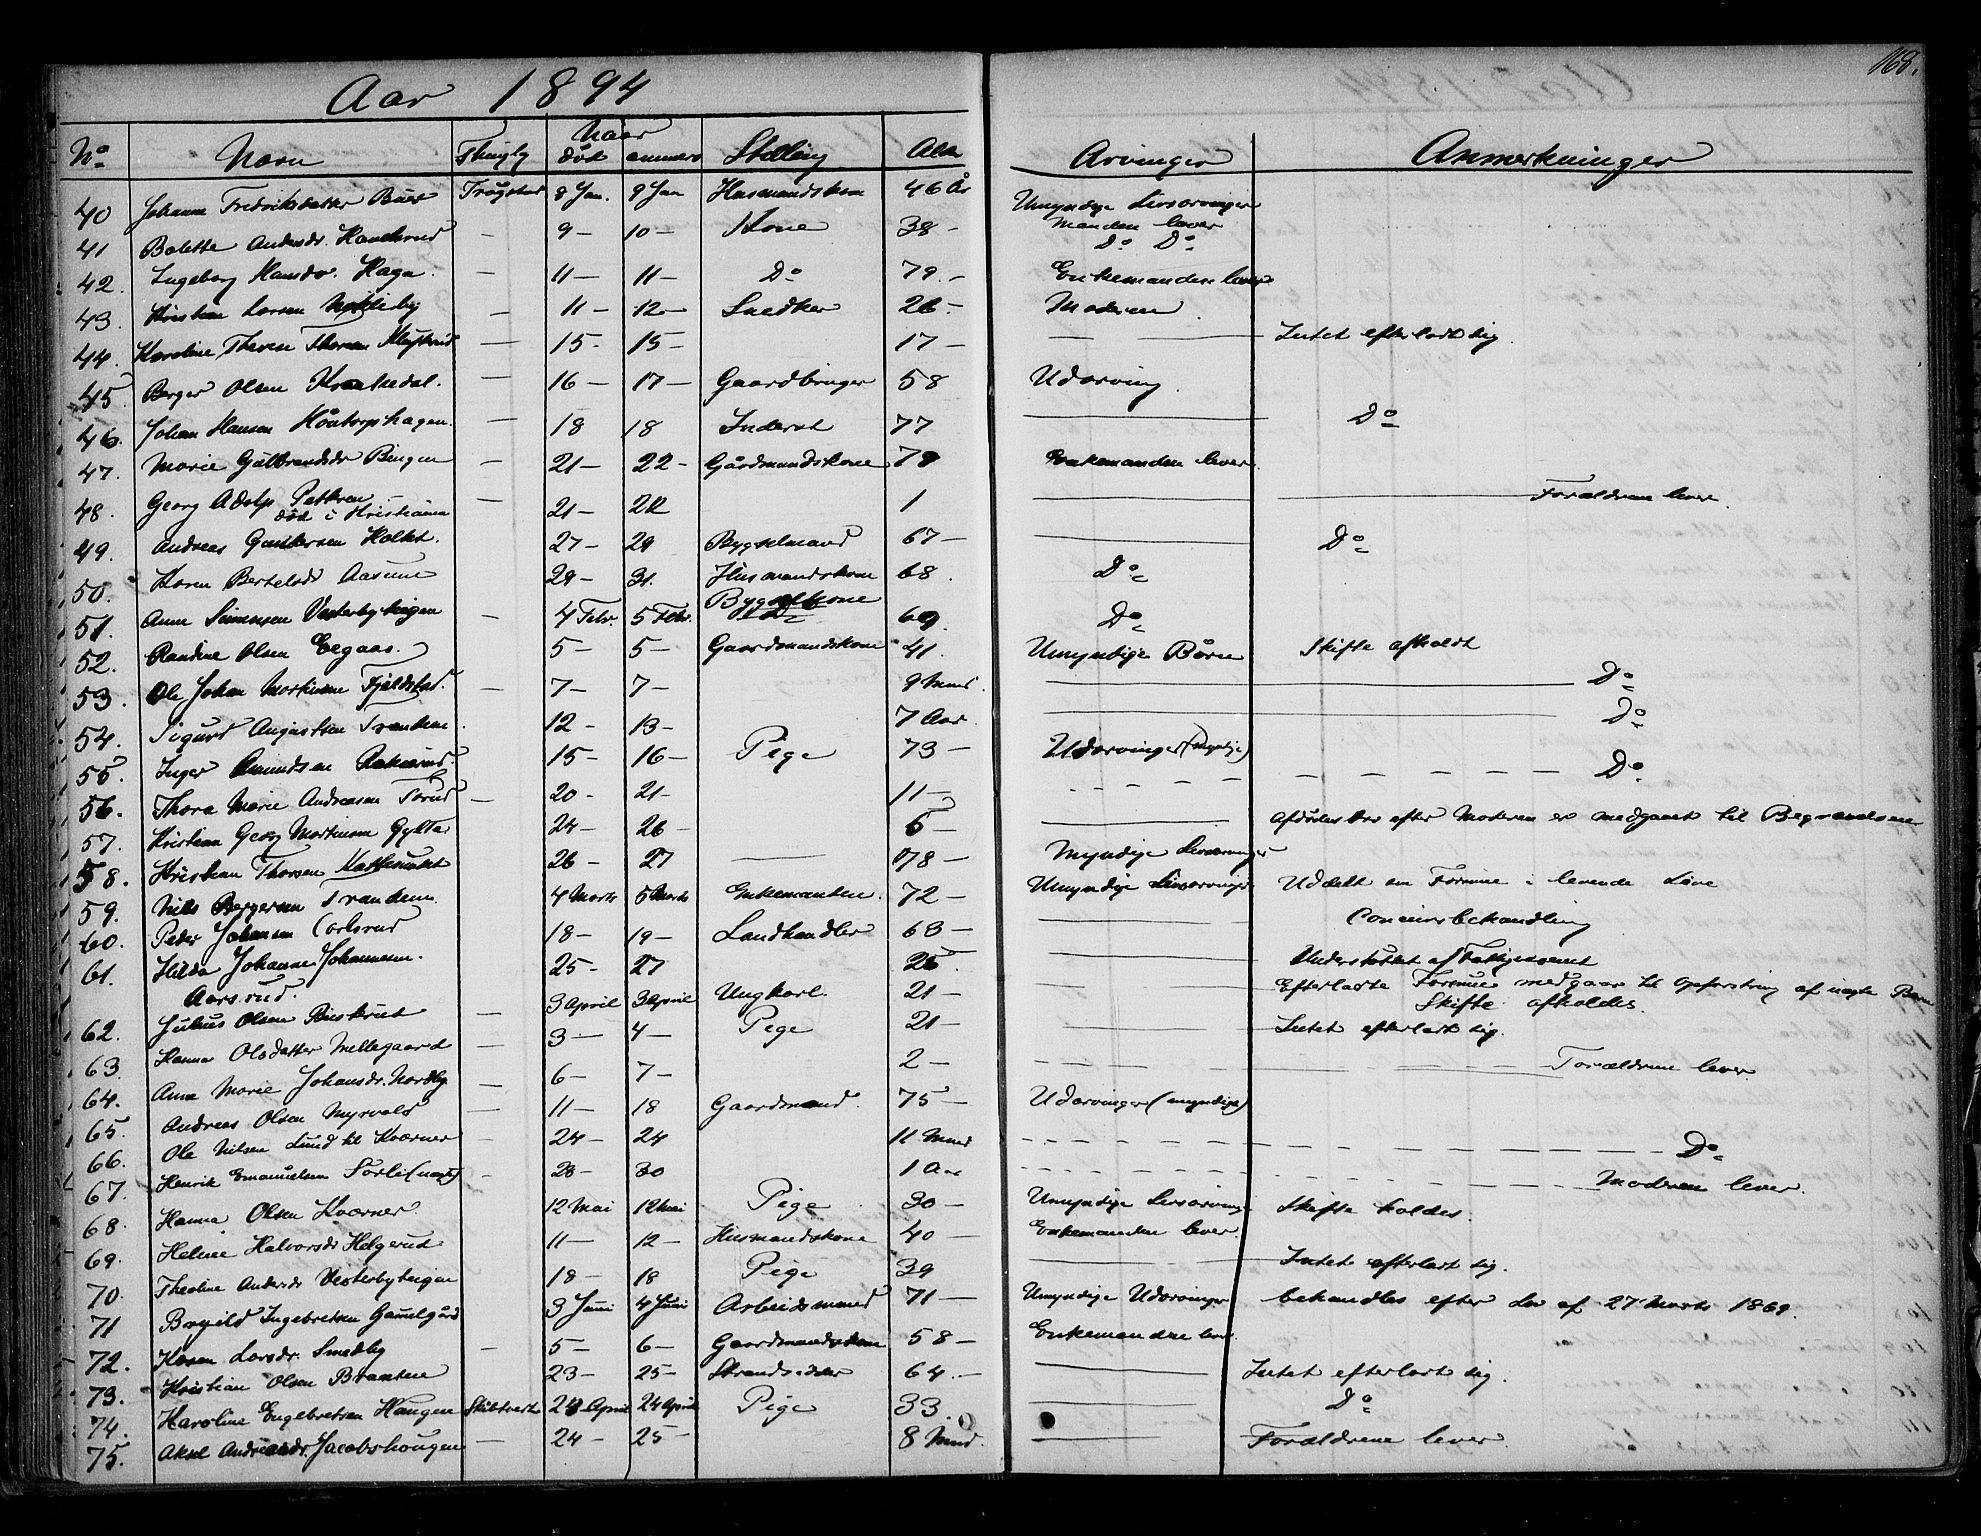 168.
Aar 1894
No Navn Thinglag Naar død anmeldt Stilling Alder Arvinger Anmerkninger
40 Johanne Fredriksdatter Trøgstad 8 Jan. 9 Jan Husmandskone 46 År Umyndige Livsarvinger
Manden lever
41 Bolette Andersdr. — 9 — 10 — Kone 38 — Do Do
42. Ingeborg Hansdr. Haga. — 11 — 11 — Do 79. — Enkemanden lever
43. Kristian Larsen — 11 — 12 — Snedker 26 — Moderen
44. Karoline Therese Thorsen — 15 — 15 — 17 — — Intet efterladt sig
45 Berger Olsen Krakedal. — 16 — 17 — Gaardbruger 58 Udarving.
46. Johan Hansen Håntorpshagen. — 18 18 Inderst 77 — Do
47. Marie Gulbrandsdr Bingen — 21 — 22 — Gårdmandskone 79 Enkemanden lever
48. Georg Adolf Pettersen — 21 — 22 1 — Forældrene lever.
død i Kristiania
49. Andreas Holtet. 27 — 29 Bygselmand 67 — — Do
50. Karen Bertelsdr Aasene 29 — 31. Husmandskone 68. Do
51. Anne Simensen Vesterbyteigen — 4 Febr. 5 Febr. Bygselkone 69. Do
52. Randine Olsen Eegaas. 5 — 5 — Gaardmandskone 41. Umyndige Børn Skifte afholdt
53. Ole Johan Martinsen Fjeldstad. — 7 — 7 — 9 Mnd. — Do
54. Sigurd Augustsen Tranden. 12 — 13 — 7 Aar. — Do
55. Inger Amundsen 15 — 16 — Pige 73 — Udarvinger (myndige) — Do
56. Thora Marie Andreasen — 20 — 21 — 11 — — —
57. Kristian Georg Martinsen 24 — 26 — 5 — — efter Moderen er medgaaet til Begravelsen
58. Kristian Thorsen 26 — 27 — 78 — Myndige Livsarvinger
59. Nils Bergersen Tranden. 4 Marts 5 Marts Enkemanden. 72 — Umyndige Livsarvinger Uddelt sin Formue i levende Live
60. Peder Johansen Carlsrud 18 — 19 — Landhandler 63 — — Concursbehandling
61. Hilda Johanne Johannesen. 25 — 27 26. Understøttet af Fattigvæsenet
Aarsrud.
62. Julius Olsen Buskerud — 3 April 3 April Ungkarl. 21 — Efterladte Formue medgaar til Opfostring af uægte Barn
Skifte afholdes.
63. Hanna Olsdatter Mellegaard — 3 — 4 — Pige 21 — — Intet efterladt sig.
64. Anne Marie Johansdr. Nordby — 6 — 7 — 2 — — Forældrene lever.
65. Andreas Olsen Myrvold — 11 — 18 Gaardmand. 75 — Udarvinger (myndige)
66. Ole Nilsen Lund til Kværner — 24 — 24 11 Mnd — Do
67. Henrik Emanuelsen Sørli (uægte) — 28 — 30 1 Aar — Moderen lever.
68. Hanna Olsen Kværner. 12 Mai 12 Mai Pige 30 — Umyndige Livsarving Skifte holdes.
69. Heline Halvorsdr Helgerud 11 — 12 — Husmandskone 40 — Enkemanden lever.
70. Theoline Andersdr Vesterbyteigen 18 — 18 Pige 39 — Intet efterladt sig.
71 Ingebretsen Gamelgård 3 Juni 4 Juni Arbeidsmand 71 — Umyndige Udarvinger behandles efter Lov af 27 Marts 1869.
72. Karen Larsdr. Smedby — 5 — 6 — Gaardmandskone 58 — Enkemanden lever.
73. Kristian Olsen Braaten 23 — 25 — Strandsidder 64. — — Intet efterladt sig.
74. Karoline Engebretsen Haugen Skibtvedt 23 April 24 April Pige 33. — Do
75. Aksel Andreasdr. Jacobshaugen — 24 — 25 — 8 Mnd. — Forældrene lever.